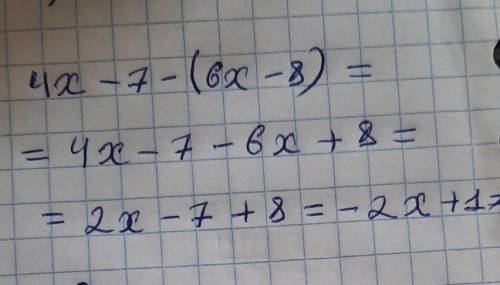 4x - 7 - (6x - 8) =
= 4x - 7 - 6x + 8 =
= 2x - 7 + 8 = -2x + 1